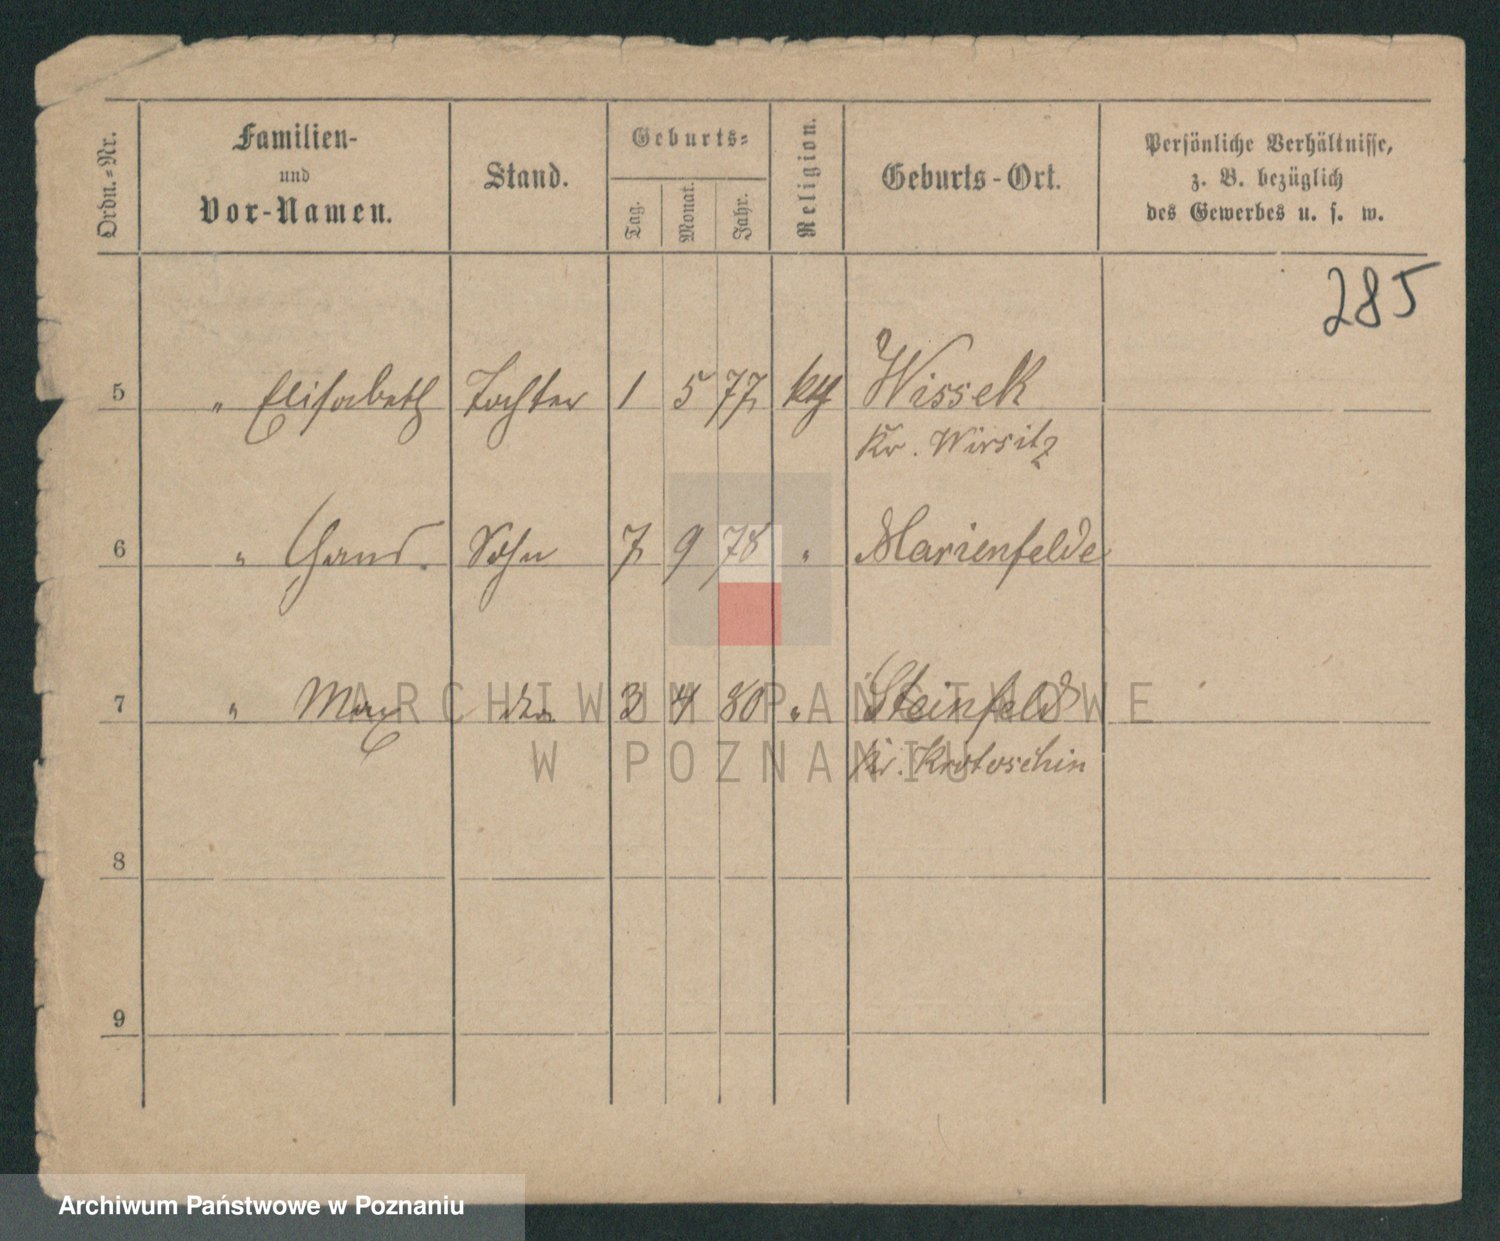 Ordn.-Nr. Familien- und Vor-Namen. Stand. Geburts- Tag. Monat. Jahr. Religion. Geburts-Ort. Persönliche Verhältnisse, z. B. bezüglich des Gewerbes u. s. w.
285
5 " Elisabeth Tochter 1 5 77 Wissek
Kr. Wirsitz
6 " Hans. Sohn 7 9 78 " Marienfelde
7 " Max do. 3 4 80 " Steinfeld
Kr. Krotoschin
8
9
ARCHIWUM PAŃSTWOWE
W POZNANIU
Archiwum Państwowe w Poznaniu